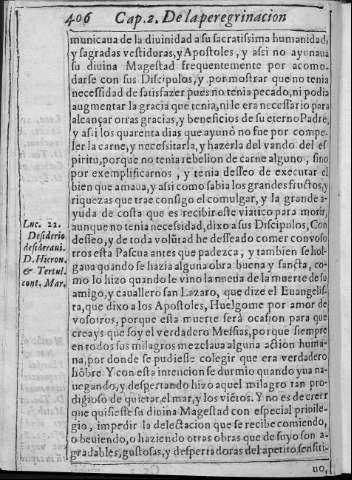 406 Cap. 2. De la peregrinacion
municaua de la diuinidad a su sacratissima humanidad,
y sagradas vestiduras, y Apostoles, y assi no ayunaua
su diuina Magestad frequentemente por acomo-
darse con sus Discipulos, y por mostrar que no tenia
necessidad de satisfazer pues no tenia pecado, ni podia
augmentar la gracia que tenia, ni le era necessario para
alcançar otras gracias, y beneficios de su eterno Padre,
y assi los quarenta dias que ayunò no fue por compe-
ler la carne, y necesitarla, y hazerla del vando del es
piritu, porque no tenia rebelion de carne alguno, sino
por exemplificarnos, y tenia desseo de executar el
bien que amaua, y assi como sabia los grandes fructos, y
riquezas que trae consigo el comulgar, y la grande a-
yuda de costa que es recibir este viatico para morir,
aunque no tenia necessidad, dixo a sus Discipulos, Con
desseo, y de toda volũtad he desseado comer convoso-
tros esta Pascua antes que padezca, y tambien se hol-
gaua quando se hazia alguna obra buena y sancta, co-
mo lo hizo quando le vino la nueua de la muerte de su
amigo, y cauallero san Lazaro, que dize el Euangelis-
ta, que dixo a los Apostoles, Huelgome por amor de
vosotros, porque esta muerte serà ocasion para que
creays que soy el verdadero Messias, porque siempre
en todos sus milagros mezclaua alguna action huma-
na, por donde se pudiesse colegir que era verdadero
hõbre. Y con esta intencion se durmio quando yua na-
uegando, y despertando hizo aquel milagro tan pro-
digioso de quietar el mar, y los viẽtos. Y no es de creer
que quisiesse su diuina Magestad con especial priuile-
gio, impedir la delectacion que se recibe comiendo,
o beuiendo, o haziendo otras obras que de suyo son a-
gradables, gustosas, y despertadoras del apetito sensiti-
uo,
Luc. 22.
Desiderio
desideraui.
D. Hieron.
& Tertul.
cont. Mar.